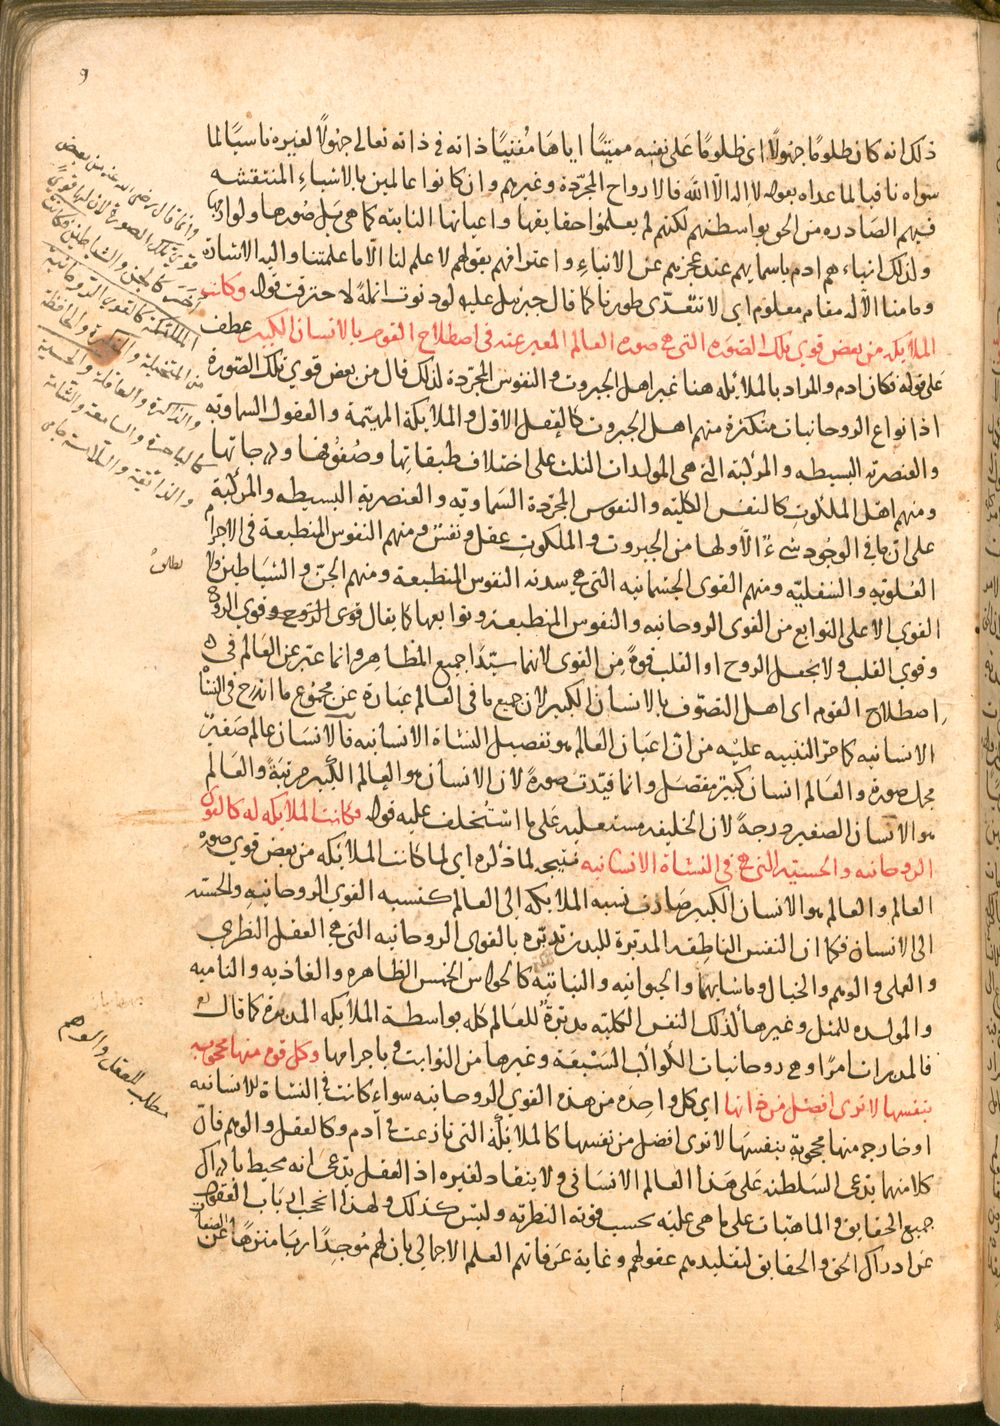 ٩
ذلك انه كان ظلوما جهولا اى ظلوما على نفسه مميتا اياها مفنيا ذاته فى ذاته تعالى جهولا لغيره ناسيا لما
سواه نافيا لما عداه بقوله لا اله الا الله فالارواح المجردة وغيرهم وان كانوا عالمين بالاشياء المنتقشه
فيهم الصادره من الحق بواسطتهم لكنهم لم يعلموا حقايقها واعيانها الثابته كما هى بل صورها ولوازمها
ولذلك انباءهم ادم باسمايهم عند عجزهم عن الانباء واعترافهم بقولهم لا علم لنا الا ما علمتنا واليه الاشارة
وما منا الا له مقام معلوم اى لا نتعدى طورنا كما قال جبرئيل عليه لو دنوت انملة لاحترقت قوله وكانت
الملايكه من بعض قوى تلك الصوره التى هى صوره العالم المعبر عنه فى اصطلاح القوم بالانسان الكبير عطف
على قوله فكان ادم والمراد بالملائكه هنا غير اهل الجبروت والنفوس المجردة لذلك قال من بعض قوى تلك الصورة
اذ انواع الروحانيات متكثرة منهم اهل الجبروت كالعقل الاول والملايكة المهيمة والعقول السماويه
والعنصريه البسيطه والمركبة التى هى المولدات الثلث على اختلاف طبقاتها وصفوفها ودرجاتها
ومنهم اهل الملكوت كالنفس الكليه والنفوس المجردة السماويه والعنصرية البسيطه والمركبة
على ان ما فى الوجود شىء الا ولها من الجبروت والملكوت عقل ونفس ومنهم النفوس المنطبعة فى الاجرام
العلويه والسفليه ومنهم القوى الجسمانيه التى هى سدنه النفوس المنطبعة ومنهم الجن والشياطين ولا
القوى الا على التوابع من القوى الروحانيه والنفوس المنطبعة وتوابعها كما يقال قوى الروح وقوى
وقوى القلب ولا يجعل الروح او القلب قوة من القوى لانهما سيدا جميع المظاهر وانما عبر عن العالم فى
اصطلاح القوم اى اهل التصوف بالانسان الكبير لان جميع ما فى العالم عبارة عن مجموع ما اندرج فى النشأ
الانسانيه كما مر التنبيه عليه من ان اعيان العالم هو تفصيل النشاة الانسانيه فالانسان عالم صغير
مجمل صورة والعالم انسان كبير مفصل وانما قيدت صورة لان الانسان هو العالم الكبير مرتبة والعالم
هو الانسان الصغير درجة لان الخليفه مستعليه على ما استخلف عليه قوله فكانت الملايكه له كالقوى
الروحانيه والحسيه التى هى فى النشاة الانسانيه نتيجه لما ذكره اى لما كانت الملايكه من بعض قوى صوره
العالم والعالم هو الانسان الكبير صارت نسبه الملايكه الى العالم كنسبه القوى الروحانيه والحسيه
الى الانسان فكما ان النفس الناطقه المدبرة للبدن تدبره بالقوى الروحانيه التى هى العقل النظرى
والعملى والوهم والخيال وما شابهما والحيوانيه والنباتيه كالحواس الخمس الظاهره والغاذيه والناميه
والمولده للمثل وغيرها لذلك النفس الكليه مدبرة للعالم كله بواسطة الملايكه المدبرة كما قال
فالمدبرات امرا وهى روحانيات الكواكب السبعة وغيرها من الثوابت وباجرامها وكل قوه منها محجوبه
بنفسها لا ترى افضل من ذاتها اى كل واحده من هذه القوى الروحانيه سواء كانت فى النشاة الانسانيه
او خارجه منها محجوبة بنفسها لا ترى افضل من نفسها كالملائكة التى نازعت فى آدم وكالعقل والوهم فان
كلا منهما يدعى السلطنه على هذا العالم الانسانى ولا ينقاد لغيره اذ العقل يدعى انه محيط بادراك
جميع الحقايق والماهيات على ما هى عليه بحسب قوته النظريه وليس كذلك ولهذا انحجب ارباب العقول
عن ادراك الحق والحقايق لتقليدهم عقولهم وغاية عرفانهم العلم الاجمالى بان لهم موجدا ربا منزها عن
الصفات
وانما قال رضى الله عنه من بعض
قوى تلك الصورة لان لها قوى
اخر كالجن والشياطين فكانت
الملائكة كالقوى الروحانية
من المتخيلة والمفكرة والحافظة
والذاكرة والعاقلة والحسية
كالباصرة والسامعة والشامة
والذائقة واللامسة جامى
مطلب العقل والوهم